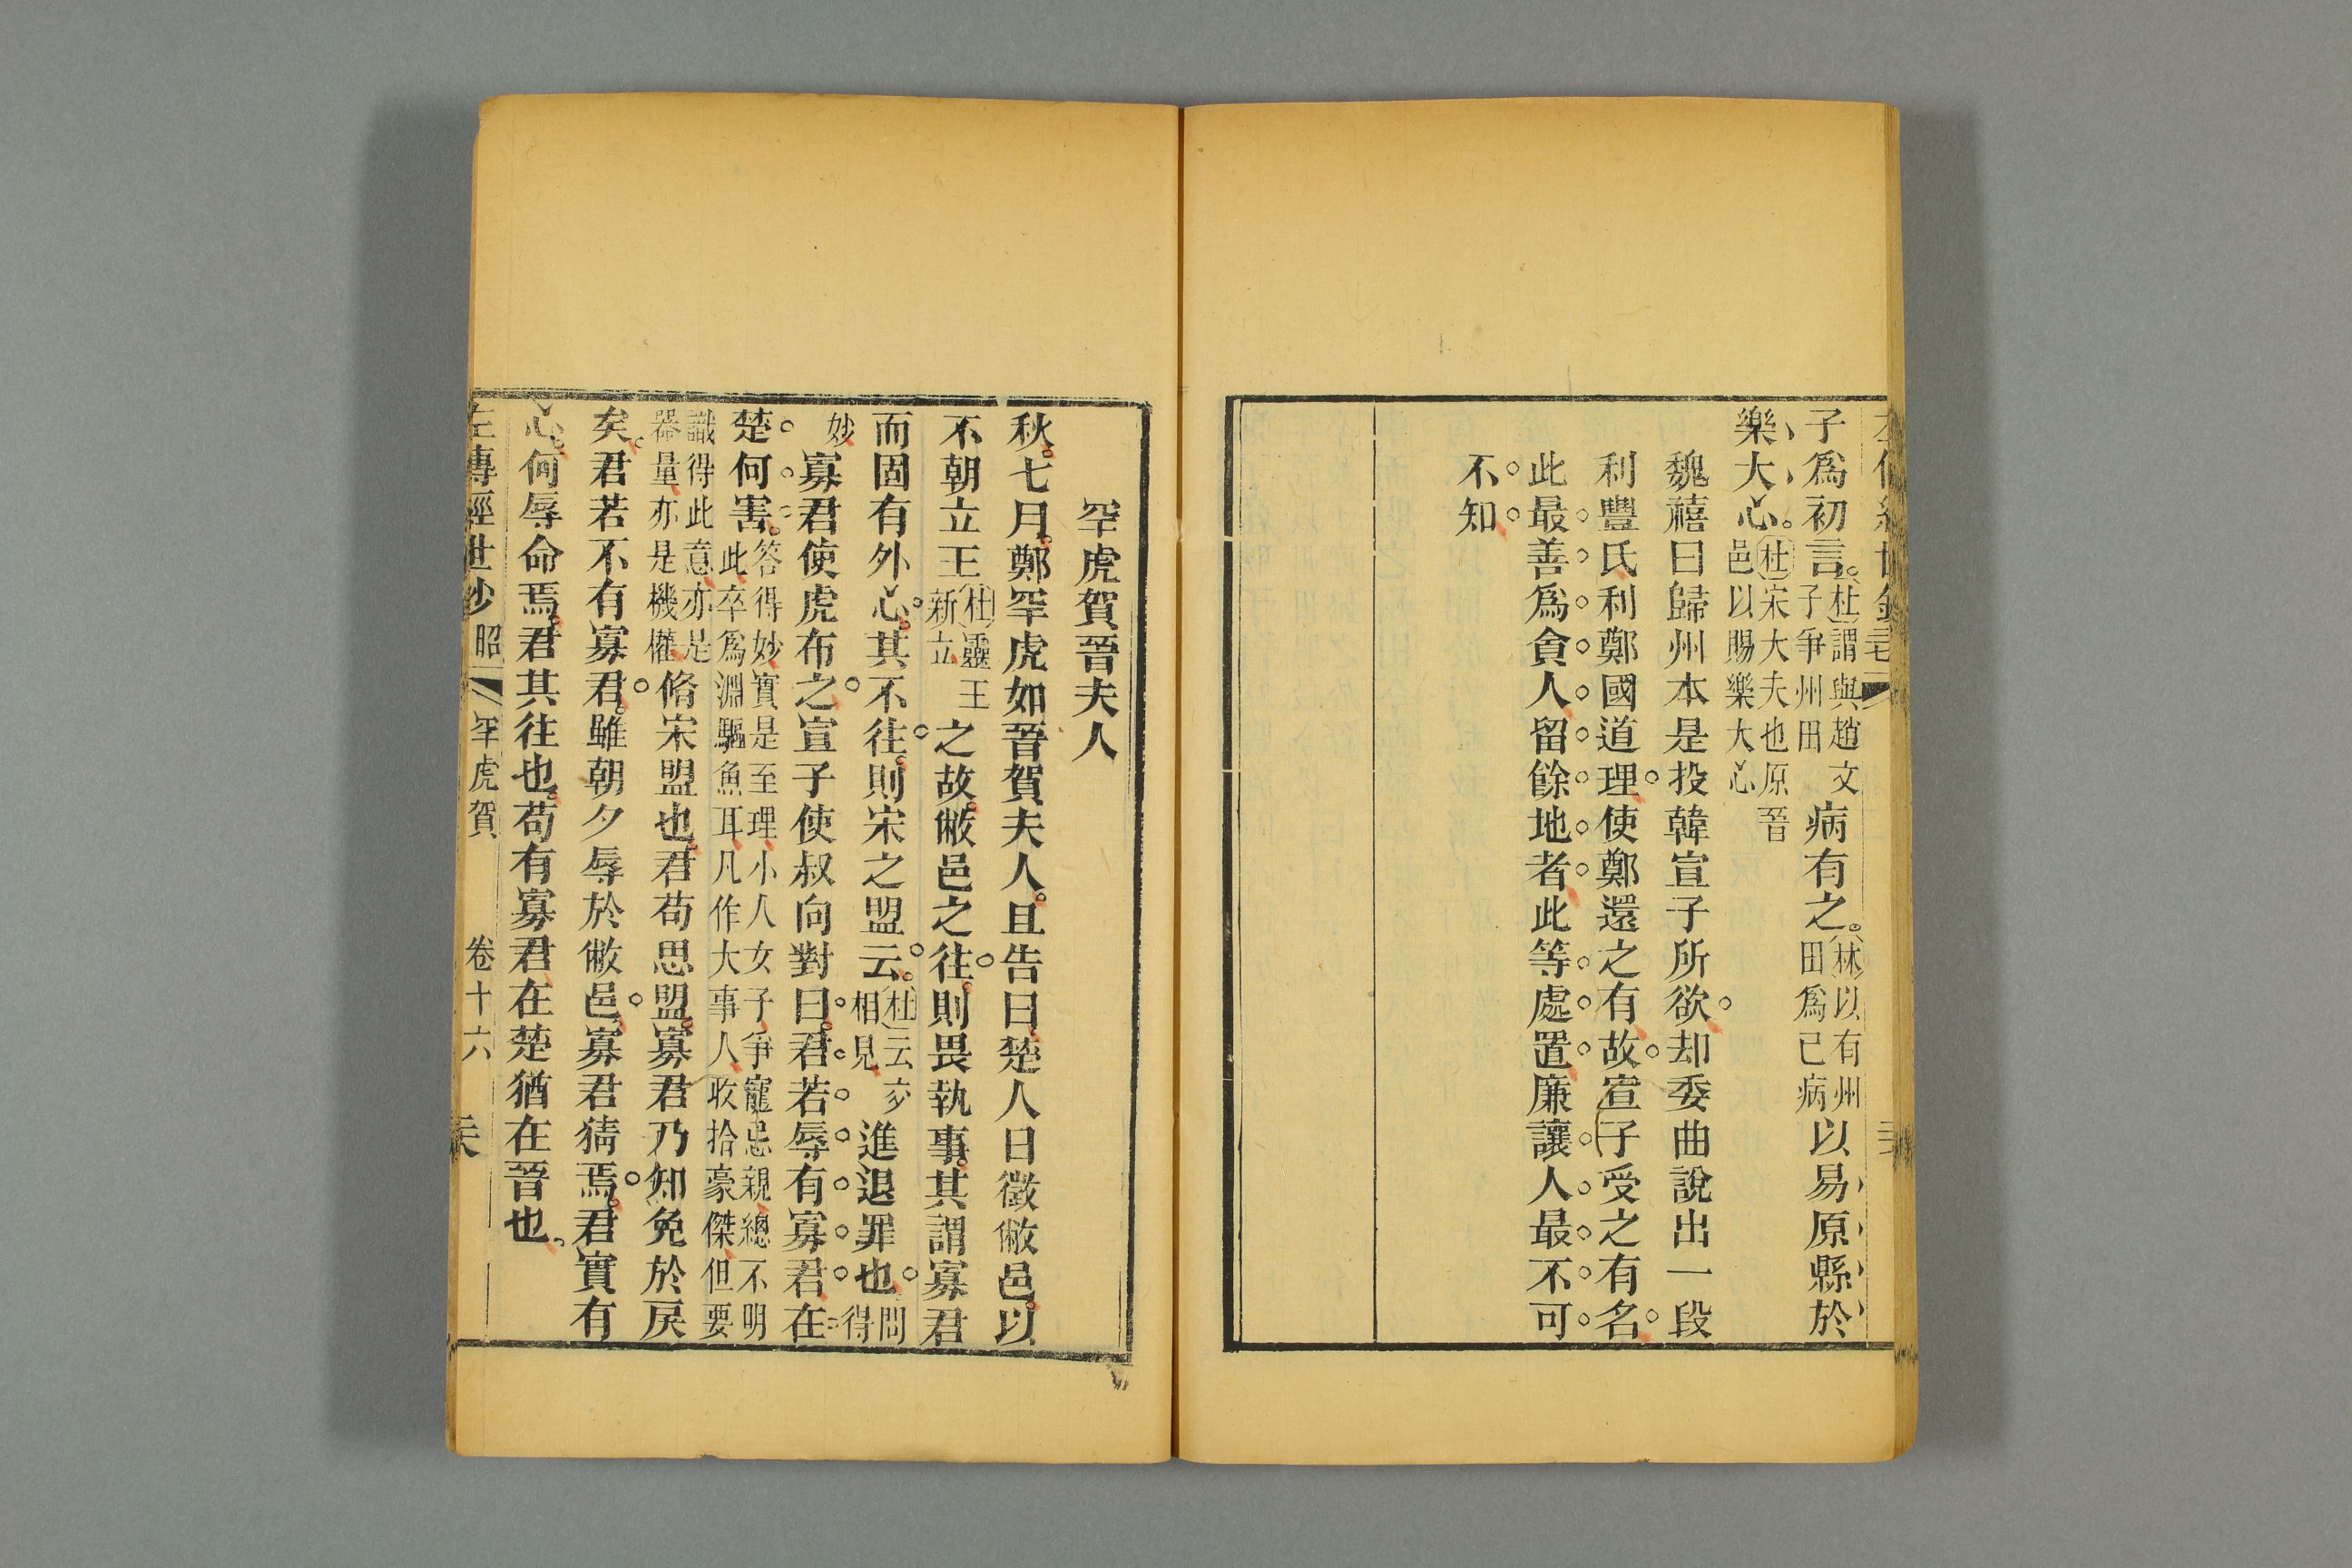 子爲初言杜謂與趙文子爭州田病有之林以有州田爲已病以易原縣於
樂大心杜宋大夫也原晉邑以賜樂大心
魏禧曰歸州本是投韓宣子所欲却委曲說出一段
利豐氏利鄭國道理使鄭還之有故宣子受之有名
此最善爲貪人留餘地者此等處置廉讓人最不可
不知
罕虎賀晉夫人
秋七月鄭罕虎如晉賀夫人且告曰楚人日徵敝邑以
不朝立王杜靈王新立之故敝邑之往則畏執事其謂寡君
而固有外心其不往則宋之盟云杜云交相見進退罪也問得
妙寡君使虎布之宣子使叔向對曰君若辱有寡君在
楚何害答得妙實是至理小人女子爭寵忌親總不明此卒爲淵驅魚耳凡作大事人收拾豪傑但要
識得此意亦是器量亦是機權脩宋盟也君苟思盟寡君乃知免於戾
矣君若不有寡君雖朝夕辱於敝邑寡君猜焉君實有
心何辱命焉君其往也苟有寡君在楚猶在晉也
左傳經世鈔 昭 罕虎賀 卷十六